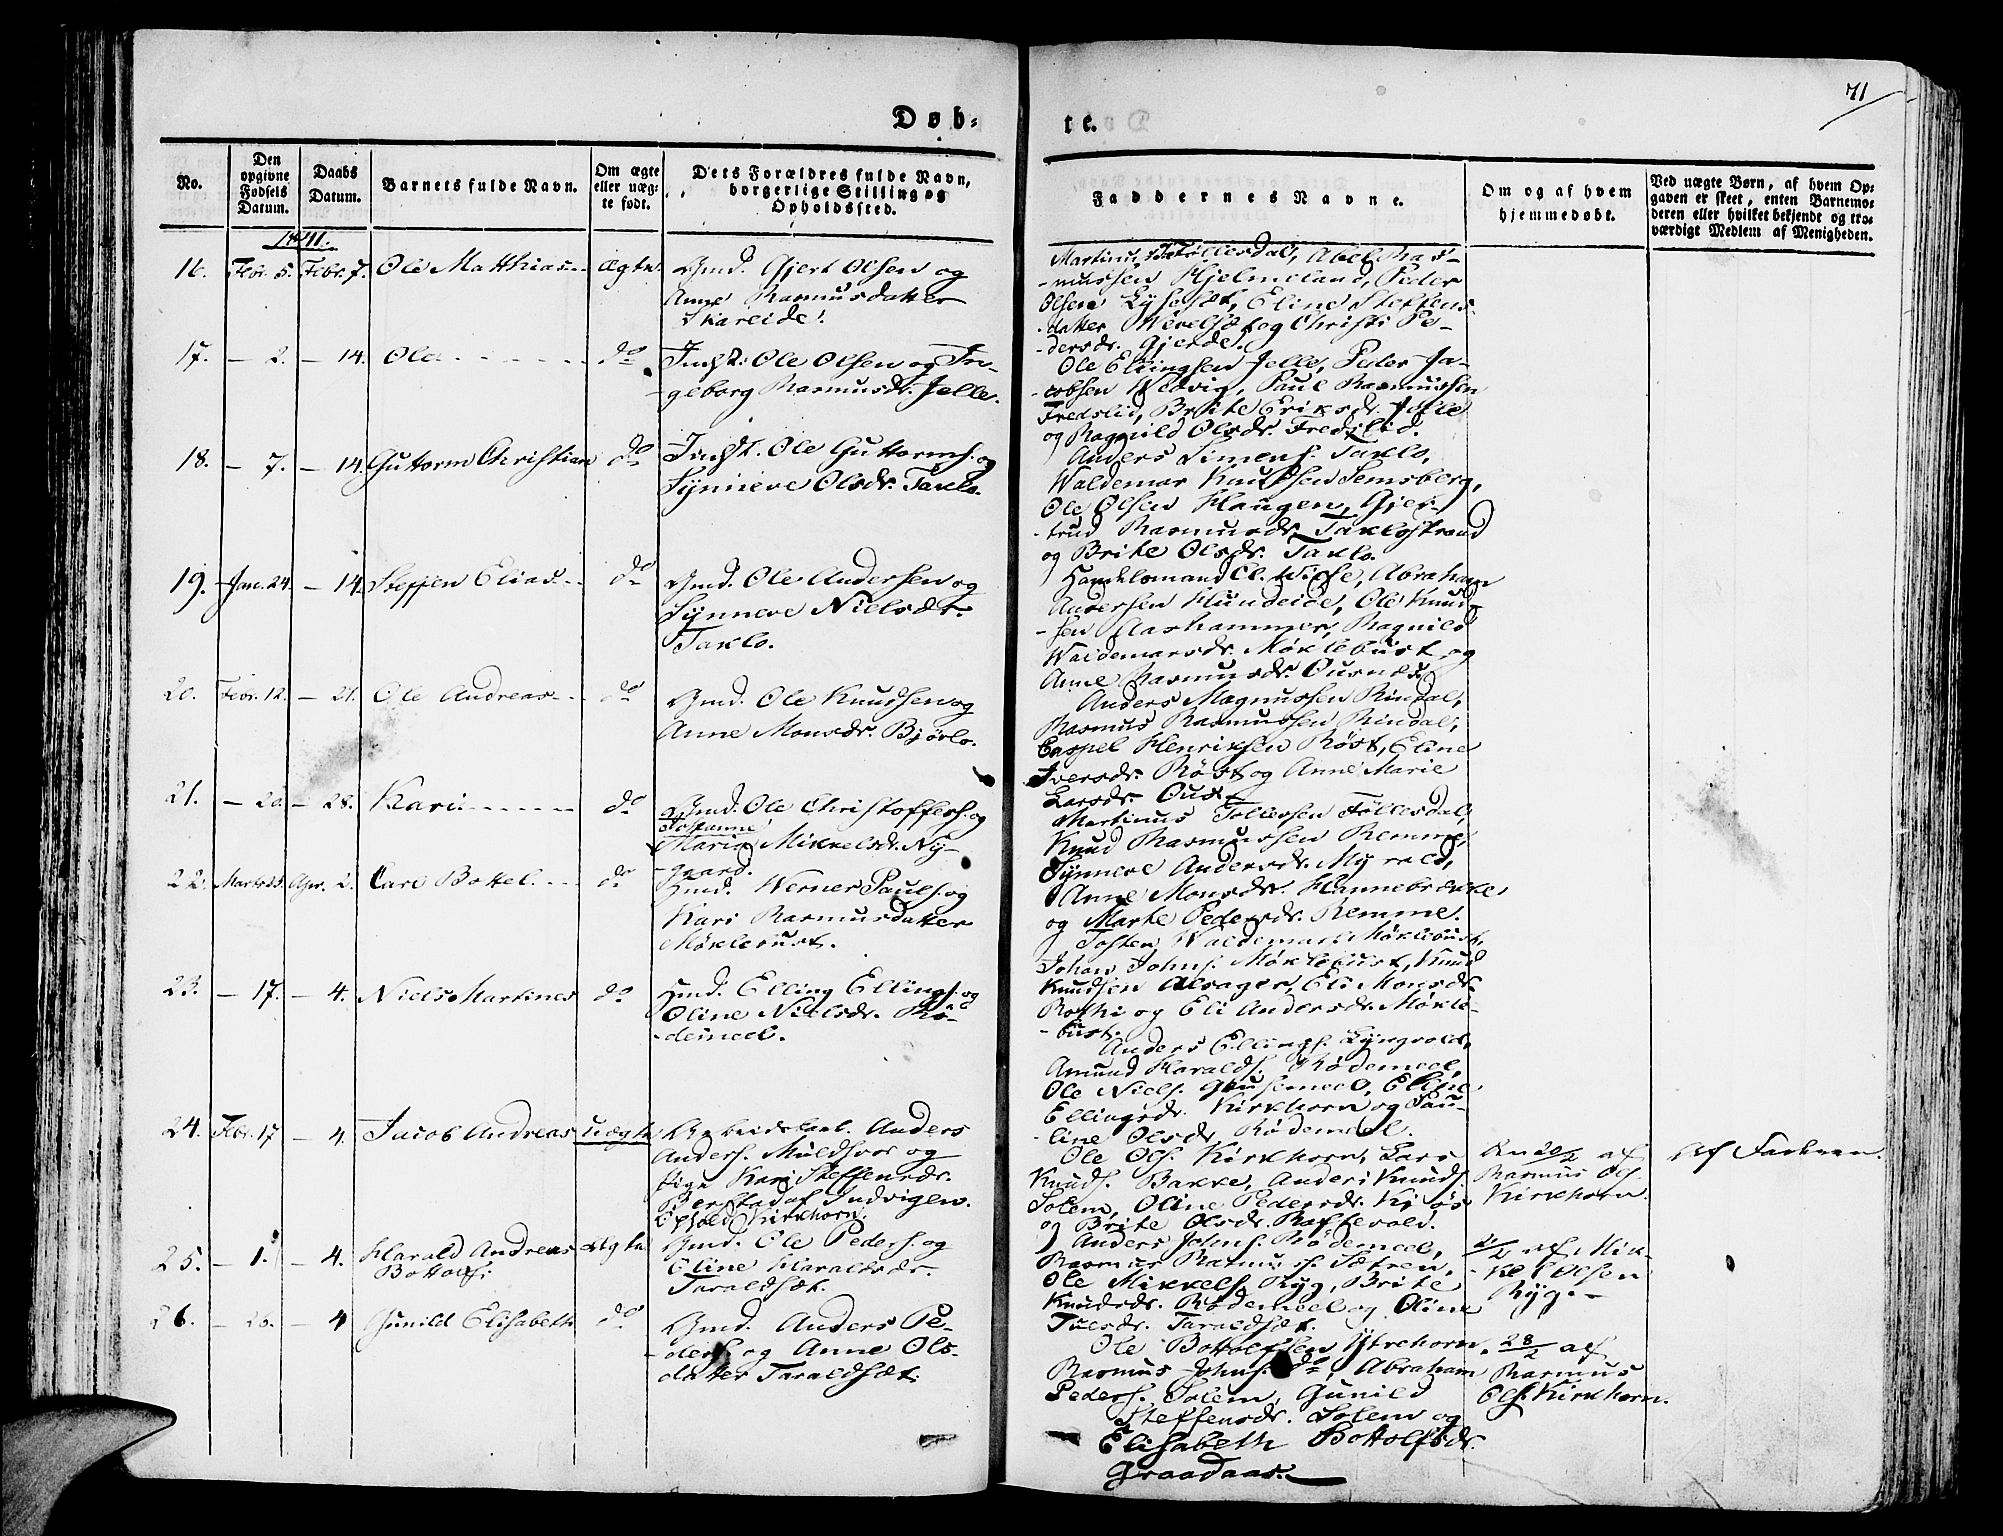 71
Døb-
te.
No.
Den opgivne Fødsels Datum.
Daabs Datum.
Barnets fulde Navn.
Om ægte eller uæg-te født.
Dets Forældres fulde Navn, borgerlige Stilling og Opholdssted.
Faddernes Navne.
Om og af hvem hjemmedøbt.
Ved uægte Børn, af hvem Op-gaven er skeet, enten Barnemo-deren eller hvilket bekjendt og tro-værdigt Medlem af Menigheden.
1841.
16. Febr. 5. Febr. 7. Ole Matthias ægte. Gmd. Gjert Olsen og
Anne Rasmusdatter
Skareide.
Martinus Föllesdal, Abel Ras-
-mussen Hjelmeland, Peder
Olsen Lyseset, Eline Steffens-
-datter Wevelset og Christi Pe-
-dersdr. Gjerde.
17. - 2. - 14. Ole do Indst: Ole Olsen og In-
-geborg Rasmusdr. Jelle.
Ole Ellingsen Jelle, Peder Ja-
-cobsen Wedvig, Paul Rasmussen
Fredslid, Brite Eriksdr. Jelle
og Ragnild Olsdr. Fredslid.
18. - 7. - 14. Guttorm Christian do Indst. Ole Guttorms. og
Synneve Olsdr. Taklo.
Anders Simens. Taklo,
Waldemar Knudsen Semsberg,
Ole Olsen Haugen, Gjer-
-trud Rasmusdr. Taklostrand
og Brite Olsdr. Taklo.
19. Jan. 24. - 14. Steffen Elias do Gmd. Ole Andersen og
Synneve Nielsdr.
Taklo.
Handelsmand Cl. Wiese, Abraham
Andersen Hundeide, Ole Knud-
-sen Aarhammer, Ragnild
Waldemarsdr. Möklebust og
Anne Rasmusdr. Ousnes.
20. Febr. 12. - 21. Ole Andreas do Gmd. Ole Knudsen og
Anne Monsdr. Bjørlo.
Anders Magnussen Rindal,
Rasmus Rasmussen Rindal,
Caspel Henriksen Röst, Eline
Iversdr. Röst og Anne Marie
Larsdr.
21. - 20. - 28. Kari do Gmd. Ole Christoffers. og
Johanne
Maria Mikkelsdr. Ny-
-gaard.
Martinus Tollersen Föllesdal,
Knud Rasmussen Remme,
Synneve Andersdr. Myrold,
Anne Monsdr. Hennebrække,
og Marte Pedersdr. Remme.
22. Marts 23. Apr. 2. Carl Bottel do Gmd. Werner Pauls. og
Kari Rasmusdatter
Möklebust.
Tosten Waldemars. Möklebust,
Johan Johns. Möklebust, Knud
Knudsen Alsager, Eli Monsdr.
Rothi og Eli Andersdr. Mökle-
-bust.
23. - 17. - 4. Niels Martines do Gmd. Elling Ellings. og
Oline Nielsdr. Rö-
-demeel.
Anders Ellings. Lyngvold,
Amund Haralds. Rödemeel,
Ole Niels. Grusemeel, Eline
Ellingsdr. Kirkhorn og Pau-
-line Olsdr. Rödemeel.
24. Febr. 17 - 4. Jacob Andreas uægte Arbeidskarl. Anders
Anders. Muldsvor og
Pige Kari Steffensdr.
Berstad af Indvigen.
Ophold Kirkhorn.
Ole Ols. Kirkhorn, Lars
Knuds. Bakke, Anders Knuds.
Solem, Oline Pedersdr. Kjös
og Brite Olsdr. Raftevold.
Den 20/2 af
Rasmus Ols.
Kirkhorn.
Af Faderen.
25. - 1. - 4. Harald Andreas
Bottolf ægte Gmd. Ole Peders. og
Oline Haraldsdr.
Taraldset.
Anders Johns. Rödemeel,
Rasmus Rasmuss. Sætren,
Ole Mikkels. Ryg, Brite
Knudsdr. Rödemeel og Oline
Tuesdr. Taraldset.
2/2 af Mik-
-kel Olsen
Ryg.
26. - 26. - 4 Gunild Elisabeth do Gmd. Anders Pe-
-ders. og Anne Ols-
datter Taraldset.
Ole Bottolfsen Ytrehorn,
Rasmus Johns. do, Abraham
Peders. Solem, Gunild
Steffensdr. Solem og
Elisabeth Bottolfsdr.
Graadaas.
28/2 af
Rasmus
Ols. Kirkhorn.